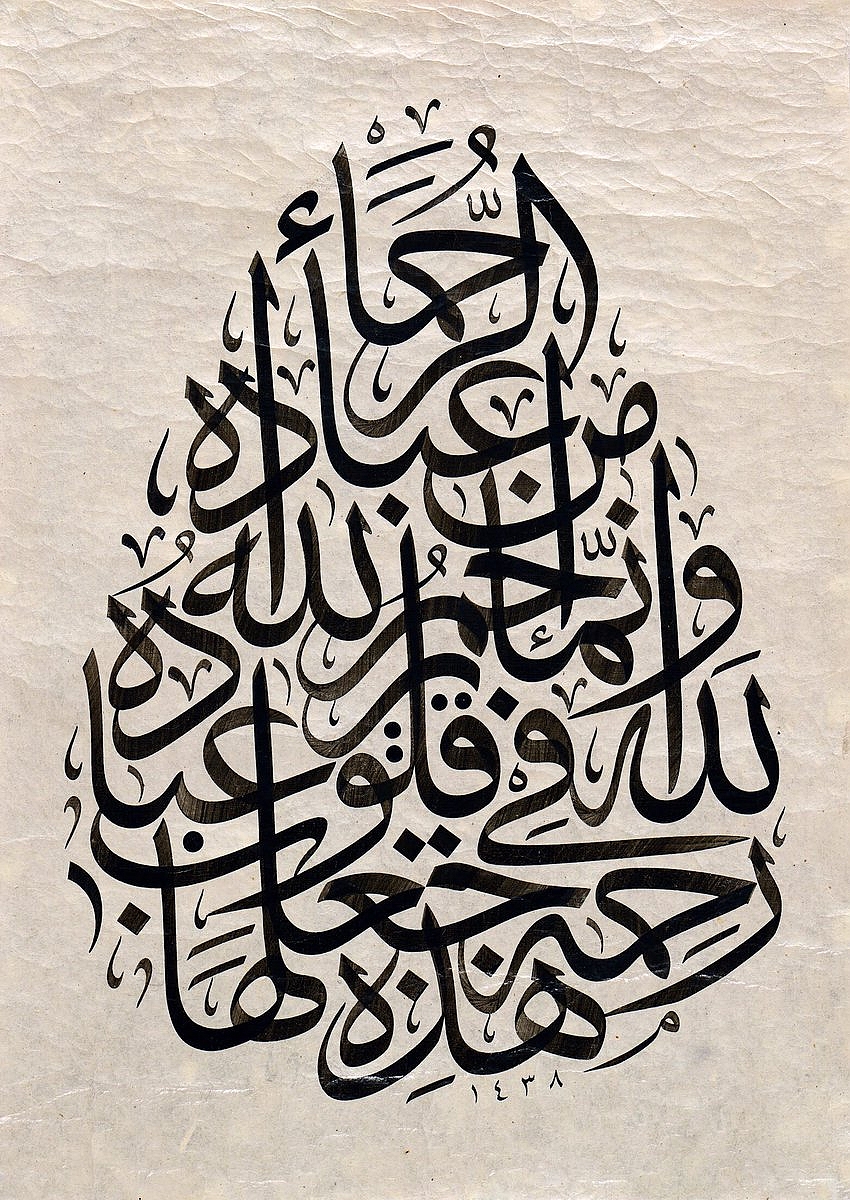 هذه رحمة جعلها
الله في قلوب عباده
وإنما يرحم الله
من عباده
الرحماء
١٤٣٨